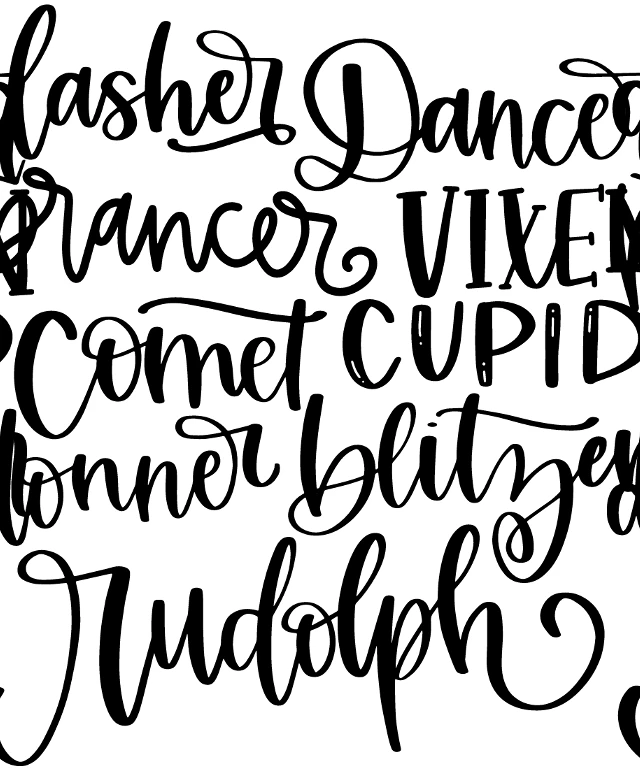 dasher Dancer
Prancer VIXEN
Comet CUPID
donner blitzen
rudolph